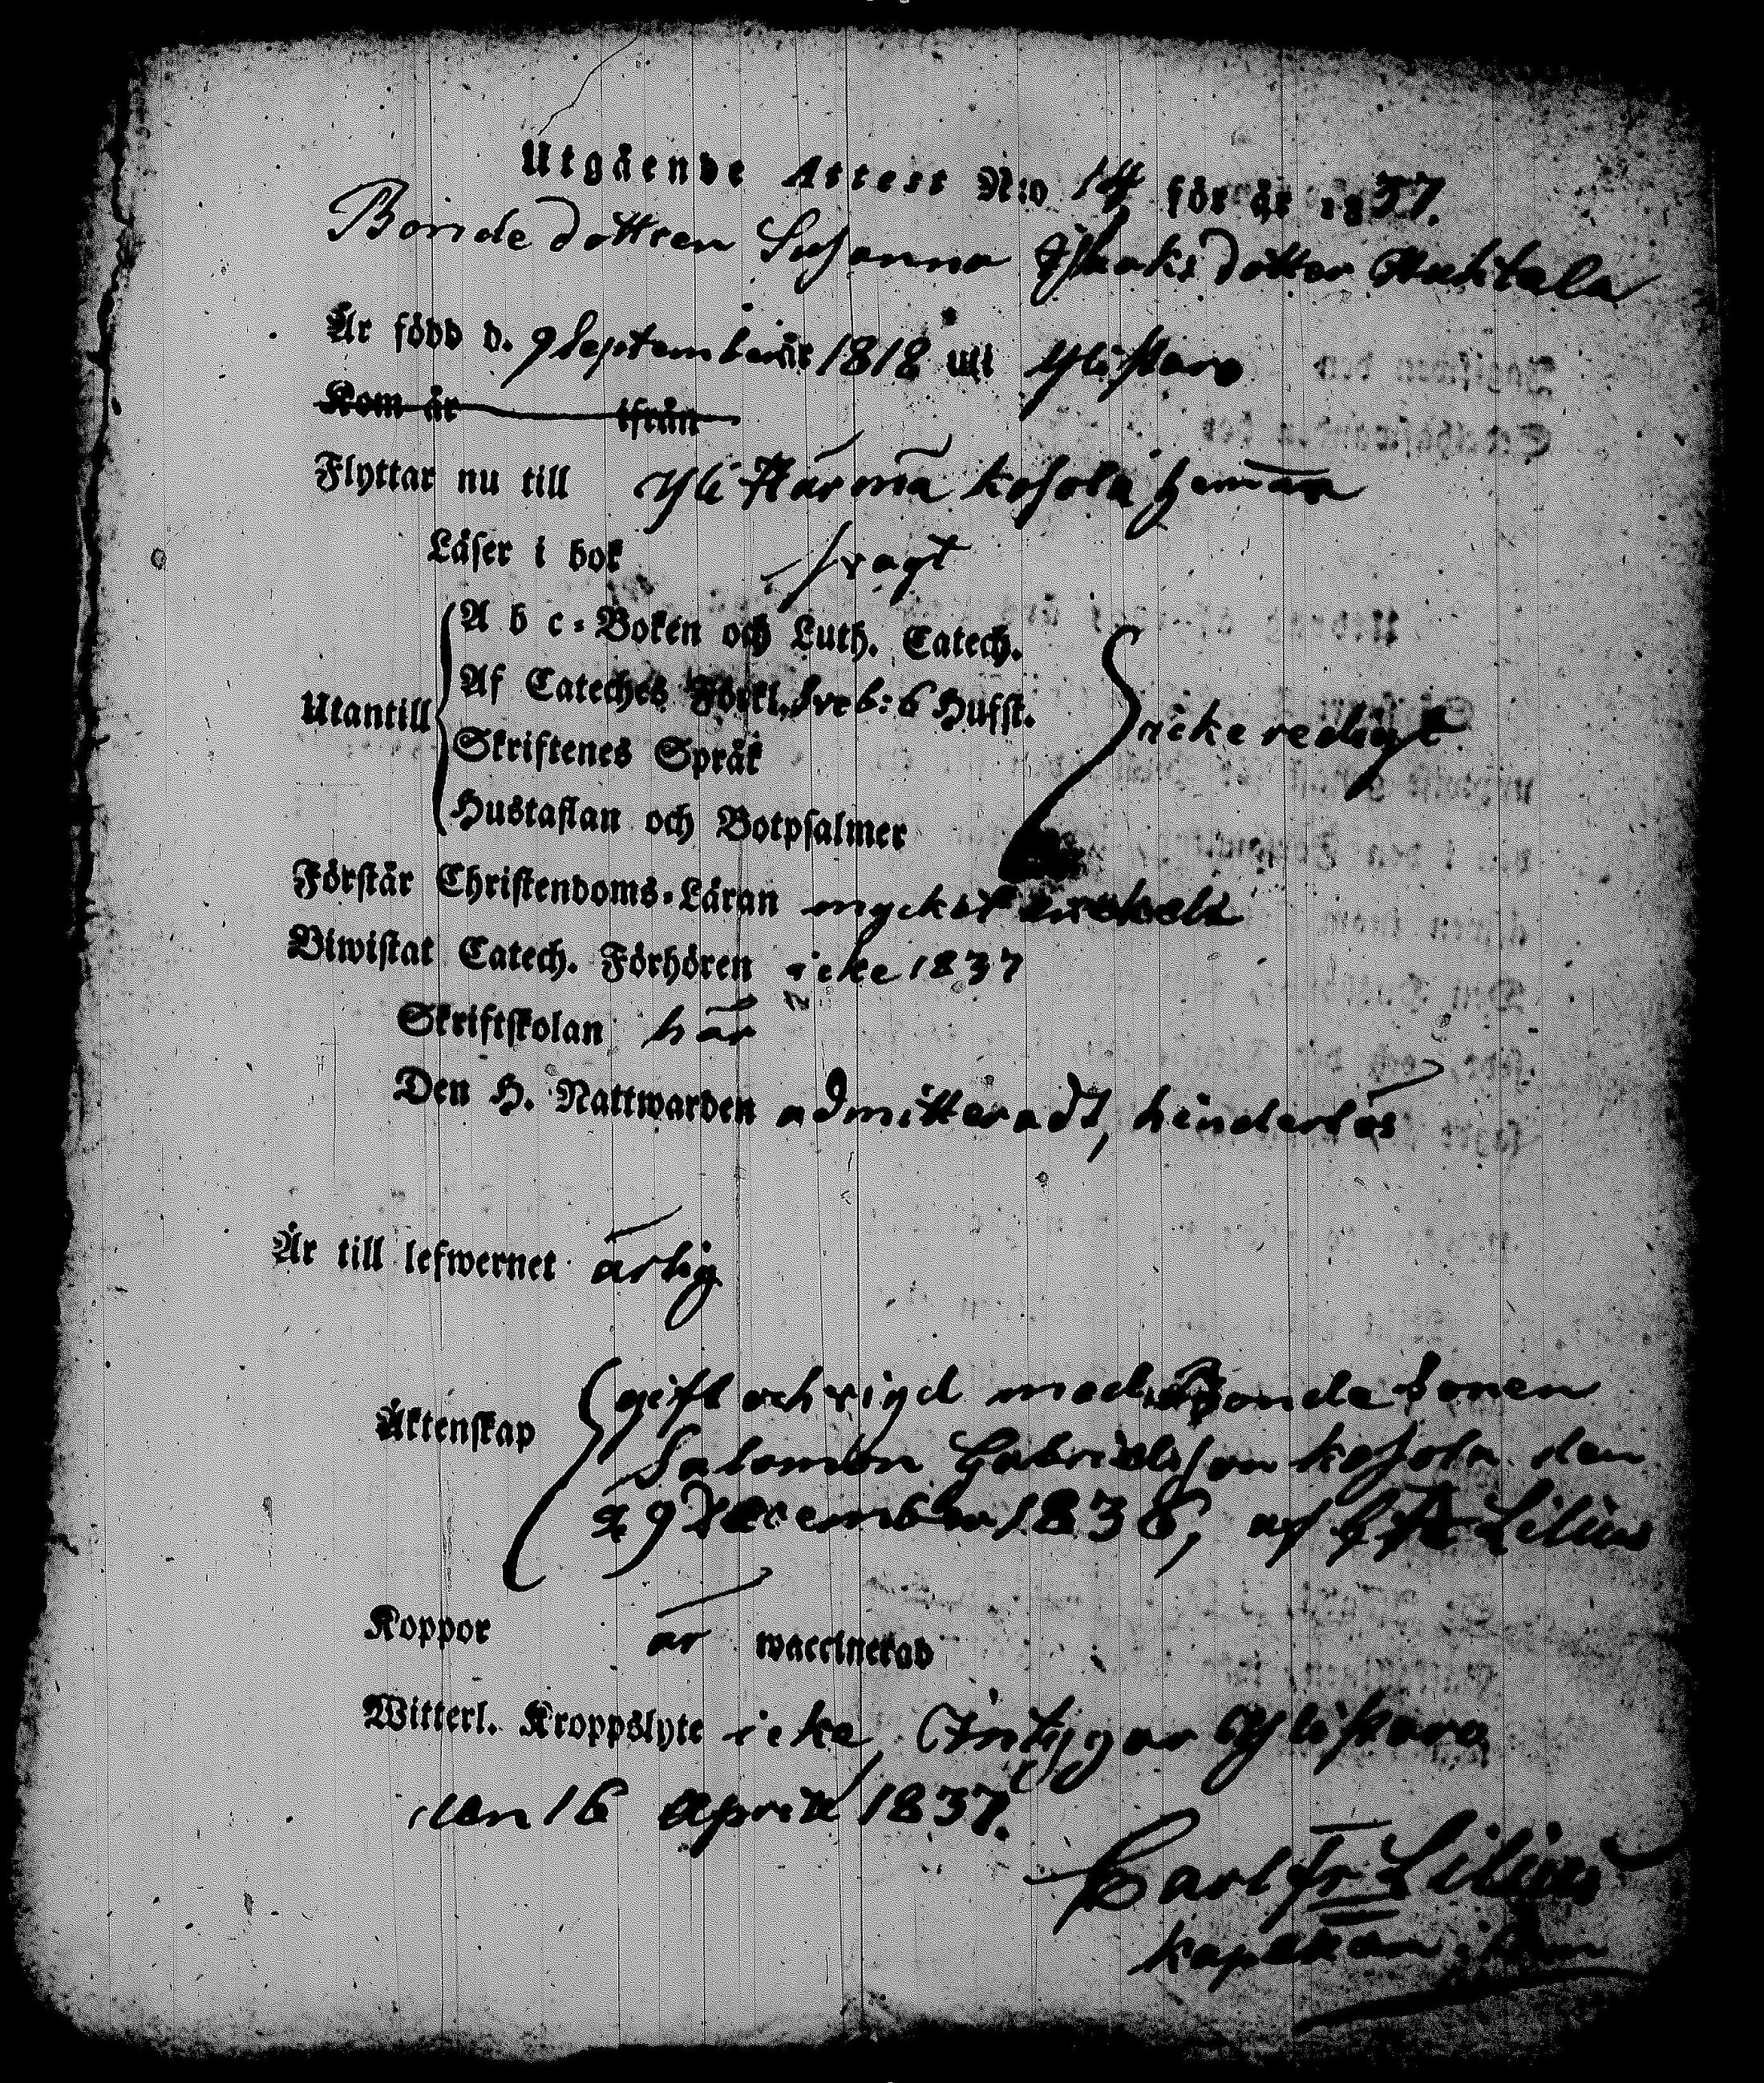 Utgående Attest N:o 14 för år 1837.
Bondedottren Susanna Isaksdotter Huhtala
Är född d. 9 September år 1818 uti Ylistaro
Kom år ifrån
Flyttar nu till Yli Härmä Kosola heman
Läser i bok svagt
A b c-Boken och Luth. Catech.
Af Cateches Förkl. Sveb: 6 Hufst.
Utantill icke redigt
Skriftenes Språk
Hustaflan och Botpsalmer
Förstår Christendoms-Läran mycket enskelt
Biwistat Catech. Förhören icke 1837
Skriftskolan här
Den H. Nattwarden admitterad, hinderlös
Är till lefwernet ärlig
gift och vigd med Bondesonen
Äktenskap
Salomon Gabrielsson Kosola den
29 December 1836, af Lilius
Koppor är waccinerad
Witterl. Kroppslyte icke, Ylistaro
den 16 April 1837.
Carl Fr. Lilius
kapellan